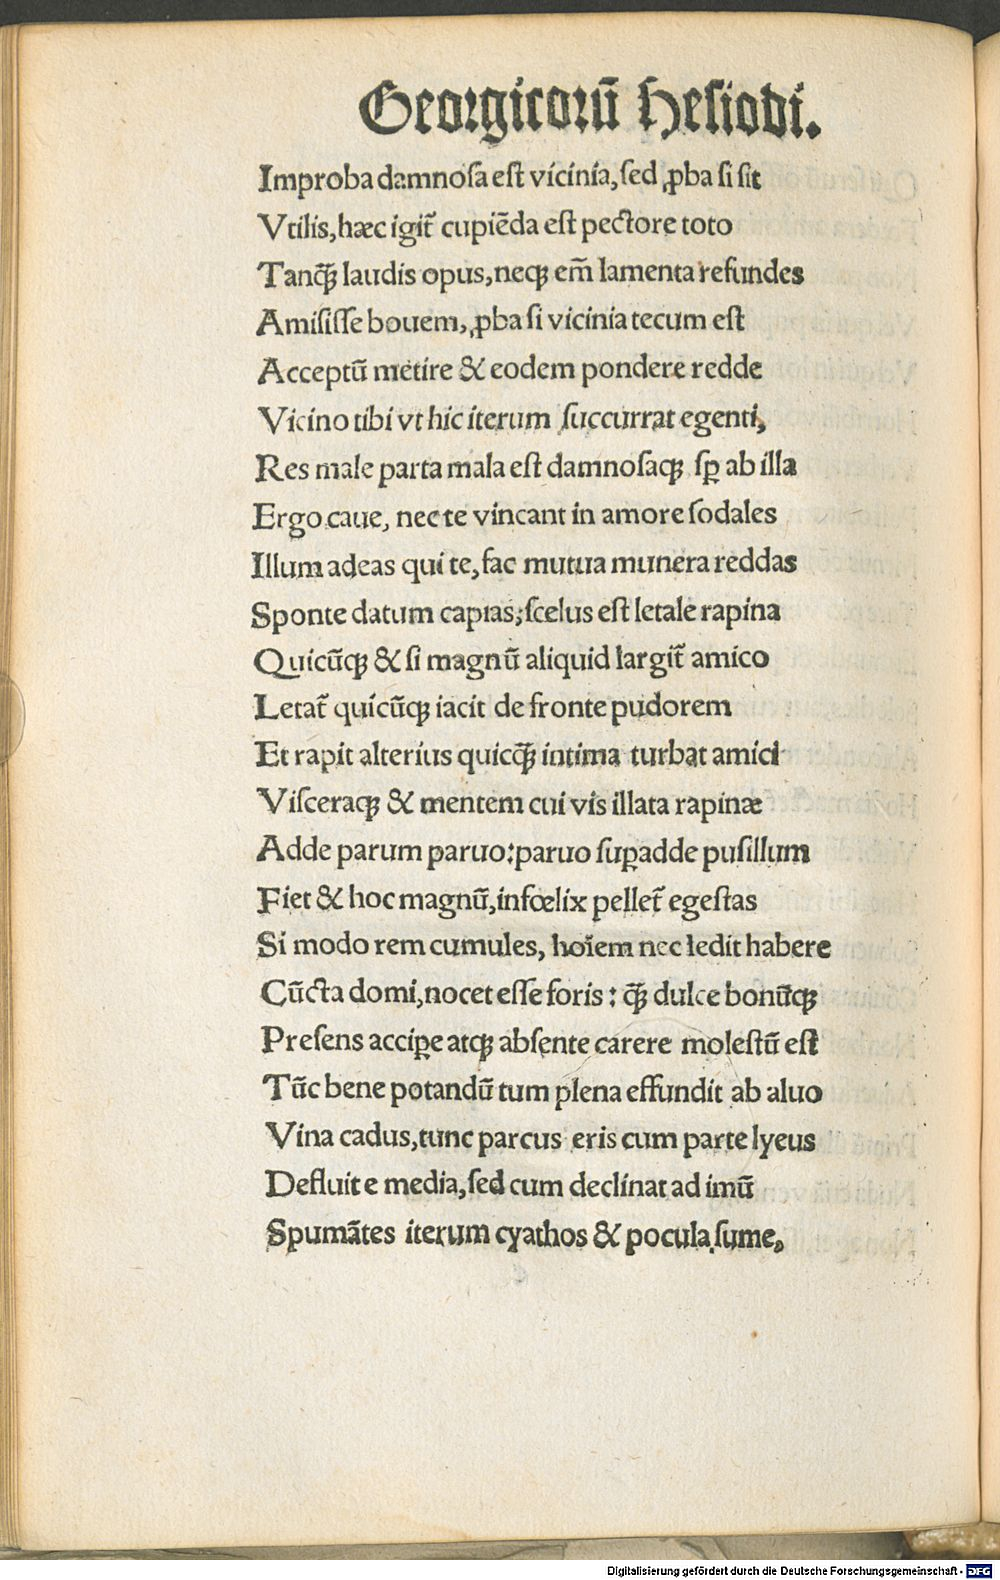 Georgicorū Hesiodi.
Improba damnosa est vicinia, sed ꝓba si sit
Vtilis, hæc igit᷑ cupiēda est pectore toto
Tanq̄ꝫ laudis opus, neqꝫ em̄ lamenta refundes
Amisisse bouem, ꝓba si vicinia tecum est
Acceptū metire & eodem pondere redde
Vicino tibi vt hic iterum succurrat egenti,
Res male parta mala est damnosaqꝫ sꝑ ab illa
Ergo caue, nec te vincant in amore sodales
Illum adeas qui te, fac mutua munera reddas
Sponte datum capias; scelus est letale rapina
Quicūqꝫ & si magnū aliquid largit᷑ amico
Letat᷑ quicūqꝫ iacit de fronte pudorem
Et rapit alterius quicq̄ꝫ intima turbat amici
Visceraqꝫ & mentem cui vis illata rapinæ
Adde parum paruo: paruo suꝑadde pusillum
Fiet & hoc magnū, infœlix pellet᷑ egestas
Si modo rem cumules, hoīem nec ledit habere
Cūcta domi, nocet esse foris: q̄ꝫ dulce bonūqꝫ
Presens acciꝑe atqꝫ absente carere molestū est
Tūc bene potandū tum plena effundit ab aluo
Vina cadus, tunc parcus eris cum parte lyeus
Defluit e media, sed cum declinat ad imū
Spumātes iterum cyathos & pocula sume,
Digitalisierung gefördert durch die Deutsche Forschungsgemeinschaft - DFG